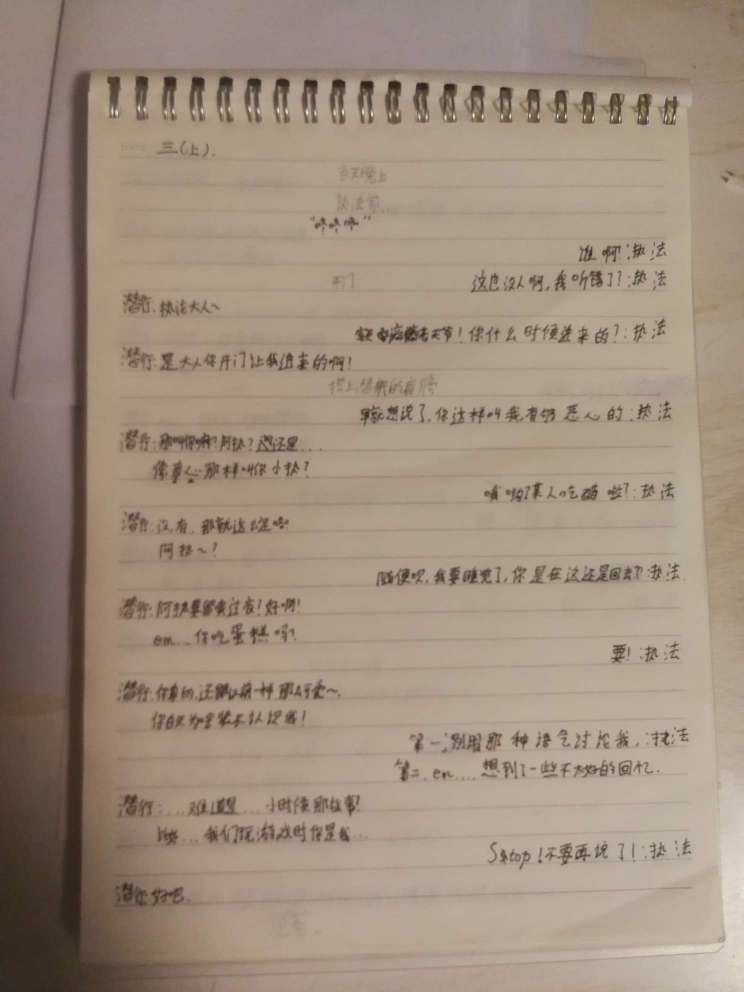 三(上).
当天晚上
执法家...
"咚咚咚"
谁啊?:执法
开门
这也没人啊,我听错了?:执法
潜行:执法大人~
你什么时候进来的?:执法
潜行:是大人你开门让我进来的啊!
早就想说了,你这样叫我有够恶心的:执法
潜行:那叫你啥?阿执?还是...
像 那样叫你小执?
某人吃醋啦?:执法
潜行:没有,那就这
阿执~?
随便呗,我要睡觉了,你是在这还是回去?:执法
潜行:阿执要留我过夜?好啊!
em...你吃蛋糕吗?
要!:执法
潜行:你真的,还跟以前一样那么可爱~,
你白天为啥装不认识我!
第一,别用那种语气讨论我,:执法
第二,em....想到了一些不太好的回忆.
潜行:...难道是...小时候那故事?
比如...我们玩游戏时你是我...
Sstop!不要再说了!:执法
潜行:好吧.